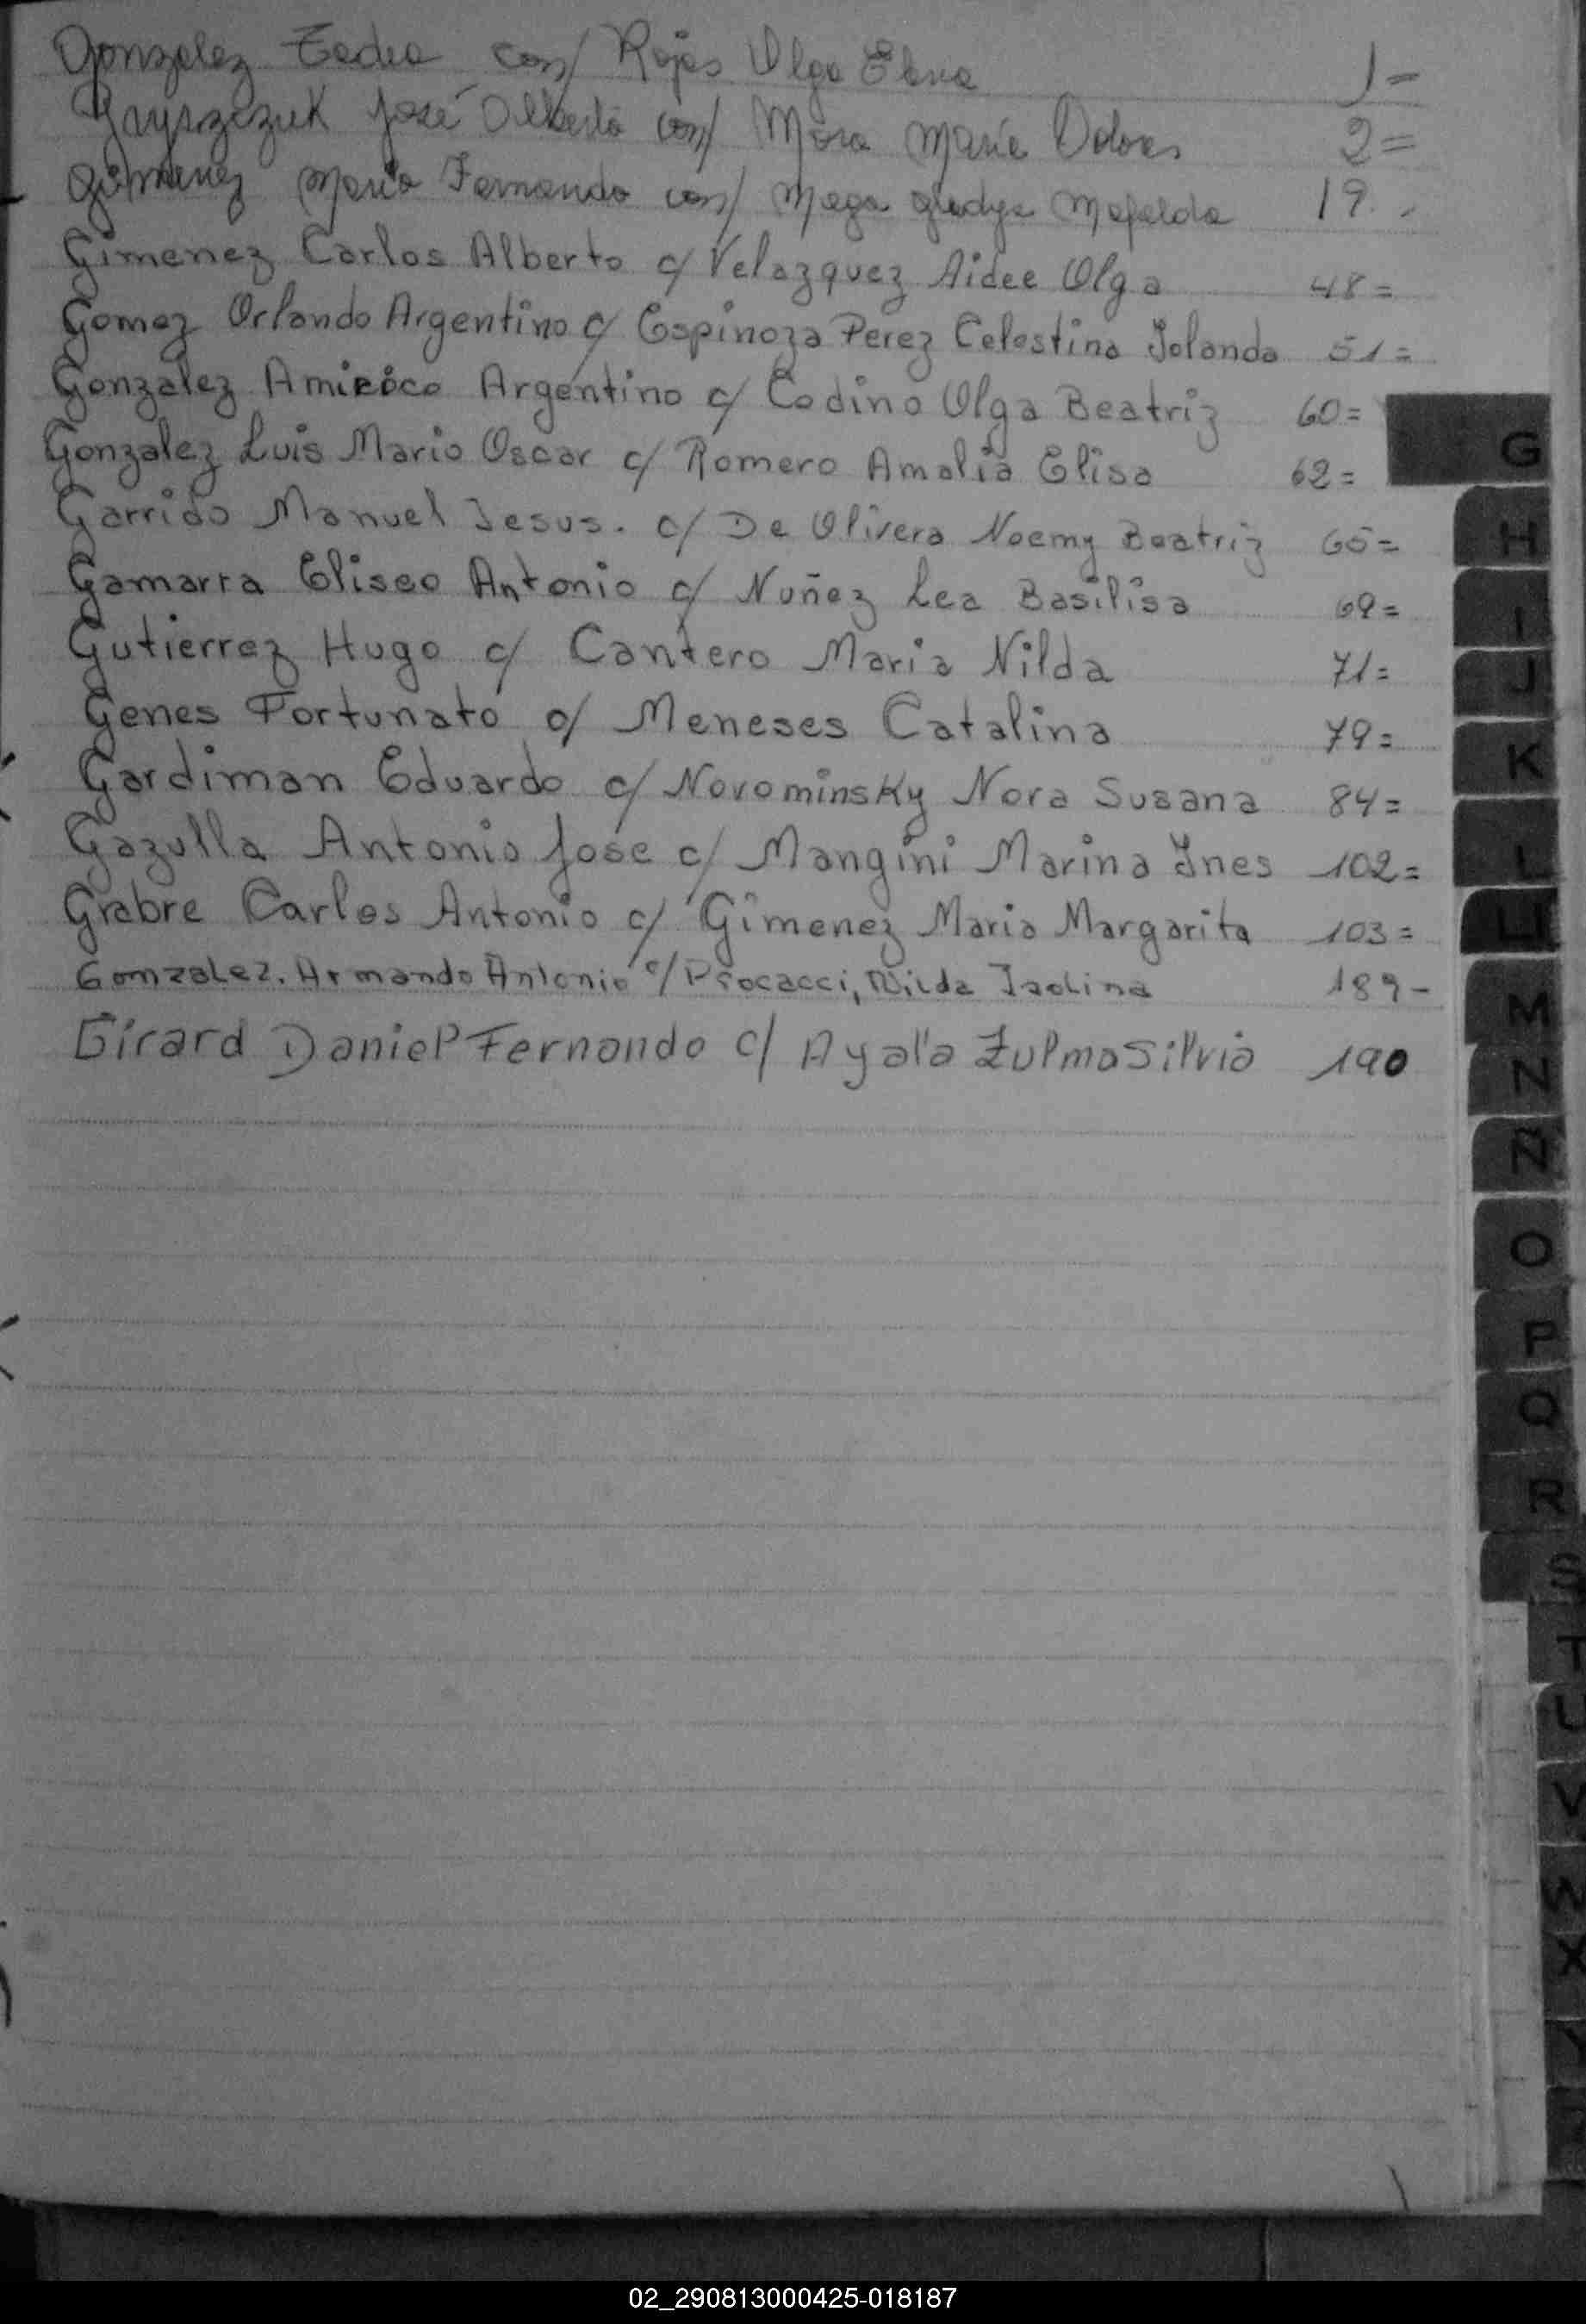 Gonzalez Tadeo con/ Rojas Olga Elena 1=
Gryszczuk José Alberto con/ Mora Maria Dolores 2=
Gimenez Mario Fernando con/ Meza Gladys Mafalda 19.
Gimenez Carlos Alberto c/ Velazquez Aidee Olga 48=
Gomez Orlando Argentino c/ Espinoza Perez Celestina Iolanda 51=
Gonzalez Amirico Argentino c/ Codino Olga Beatriz 60=
Gonzalez Luis Mario Oscar c/ Romero Amalia Elisa 62=
Garrido Manuel Jesus. c/ De Olivera Noemy Beatriz 65=
Gamarra Eliseo Antonio c/ Nuñez Lea Basilisa 69=
Gutierrez Hugo c/ Cantero Maria Nilda 71=
Genes Fortunato c/ Meneses Catalina 79=
Gardiman Eduardo c/ Novominsky Nora Susana 84=
Gazulla Antonio José c/ Mangini Marina Ines 102=
Grabre Carlos Antonio c/ Gimenez Maria Margarita 103=
Gonzalez, Armando Antonio c/ Procacci, Nilda Isolina 189-
Girard Daniel Fernando c/ Ayala Zulma Silvia 190
G
H
I
J
K
L
LL
M
N
Ñ
O
P
Q
R
S
T
U
V
W
X
Y
02_290813000425-018187